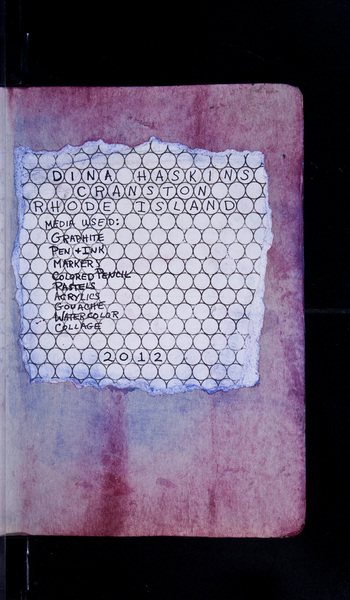 DINA HASKINS
CRANSTON
RHODE ISLAND
MEDIA USED:
GRAPHITE
PEN + INK
MARKER
COLORED PENCIL
PASTELS
ACRYLICS
GOUACHE
WATERCOLOR
COLLAGE
2012